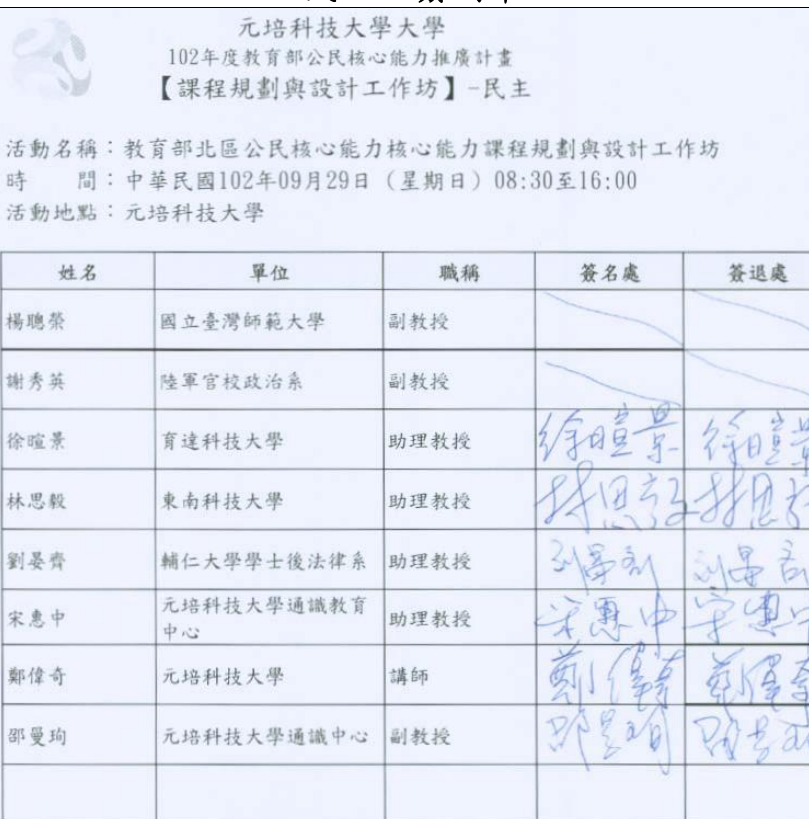 元培科技大學大學
102年度教育部公民核心能力推廣計畫
【課程規劃與設計工作坊】-民主
活動名稱：教育部北區公民核心能力核心能力課程規劃與設計工作坊
時　間：中華民國102年09月29日（星期日）08:30至16:00
活動地點：元培科技大學
姓名 單位 職稱 簽名處 簽退處
楊聰榮 國立臺灣師範大學 副教授
謝秀英 陸軍官校政治系 副教授
徐暄景 育達科技大學 助理教授 徐暄景 徐暄景
林思毅 東南科技大學 助理教授 林思毅 林思毅
劉晏齊 輔仁大學學士後法律系 助理教授 刘晏齐 刘晏齐
宋惠中 元培科技大學通識教育
中心 助理教授 宋惠中 宋惠中
鄭偉奇 元培科技大學 講師 鄭偉奇 鄭偉奇
邵曼珣 元培科技大學通識中心 副教授 邵曼珣 邵曼珣